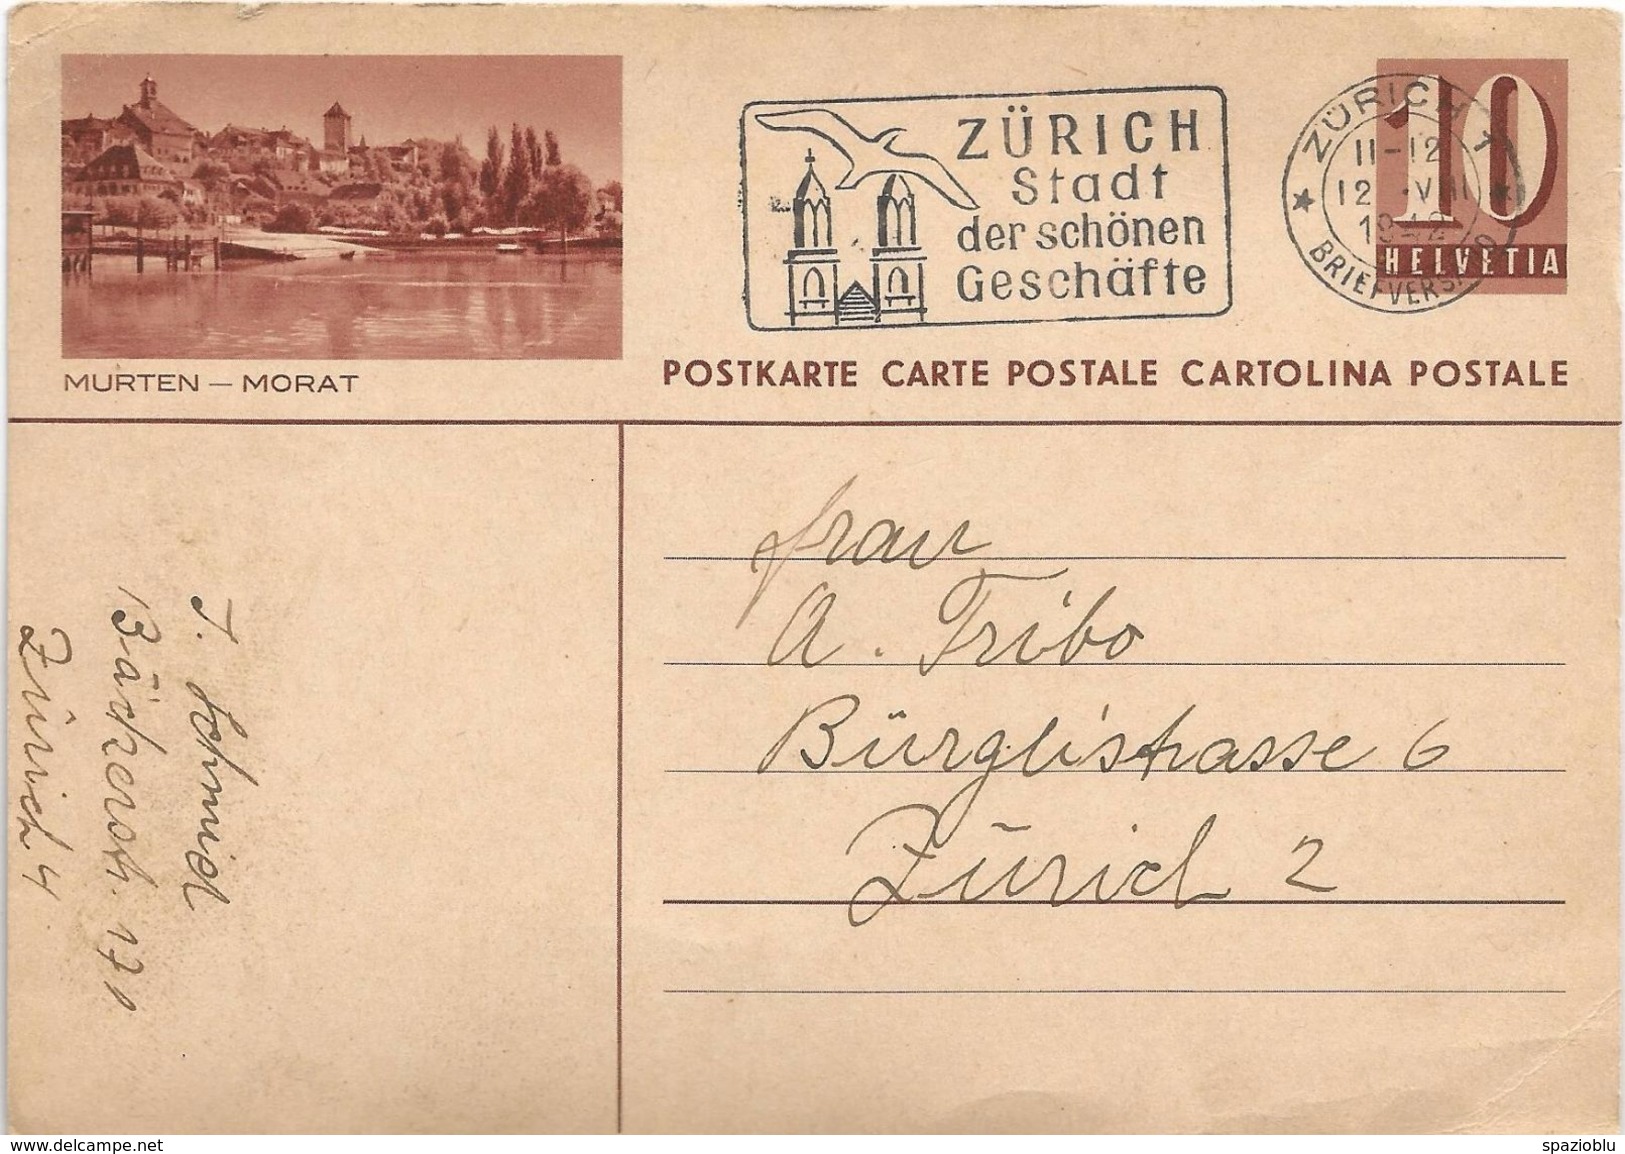 ZÜRICH
Stadt
der schönen
Geschäfte
ZÜRICH 1
11-12
12.VIII
1942
BRIEFVERSAND
10
HELVETIA
MURTEN — MORAT
POSTKARTE CARTE POSTALE CARTOLINA POSTALE
Frau
A. Tribo
Bürglistrasse 6
Zürich 2
J. Schmid
Bäckerstr. 171
Zürich 4
www.delcampe.net
spazioblu